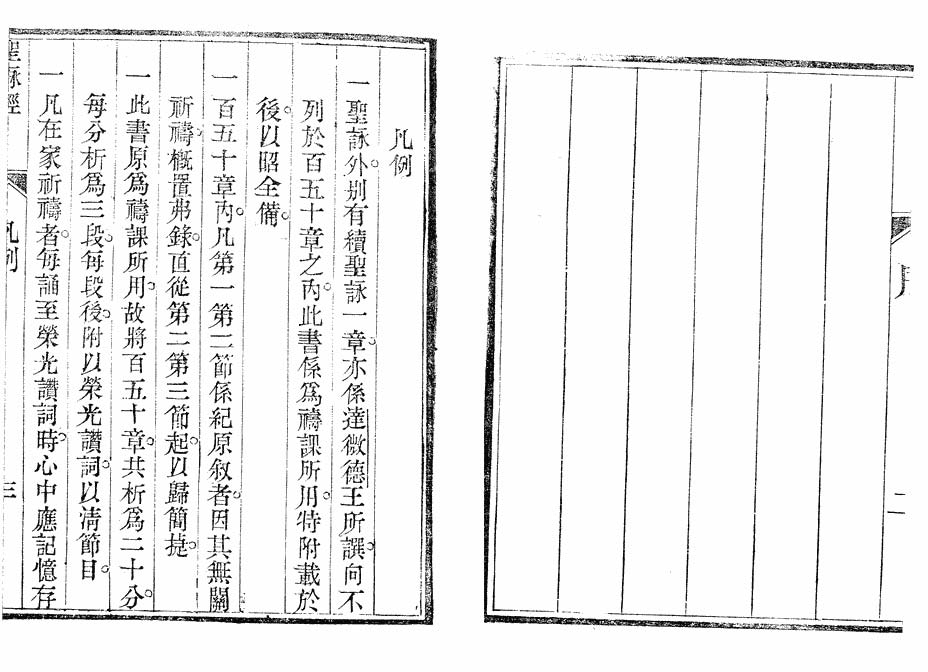 二
凡例
一聖詠外。別有續聖詠一章。亦係達微德王所譔。向不
列於百五十章之內。此書係爲禱課所用。特附載於
後。以昭全備。
一百五十章內。凡第一第二節係紀原敘者。因其無關
祈禱。概置弗錄。直從第二第三節起。以歸簡捷。
一此書原爲禱課所用。故將百五十章。共析爲二十分。
每分析爲三段。每段後。附以榮光讚詞。以清節目。
一凡在家祈禱者。每誦至榮光讚詞時。心中應記憶存
聖詠經 凡例 三